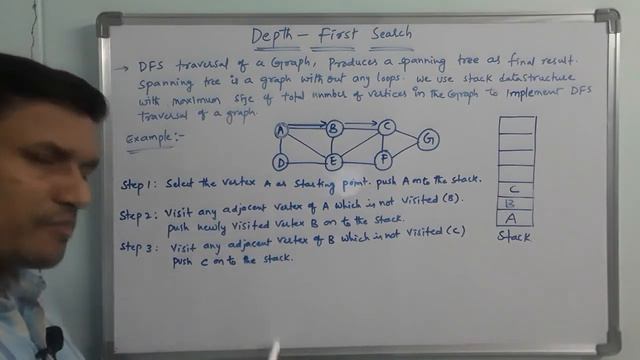 Depth - First Search
→ DFS traversal of a Graph, Produces a spanning tree as final result.
Spanning tree is a graph with out any loops. we use stack datastructure
with maximum size of total number of vertices in the Graph to implement DFS
traversal of a graph.
Example:-
A B C
G
D E F
Step 1: Select the vertex A as starting point. push A onto the stack.
Step 2: Visit any adjacent vertex of A which is not visited (B).
push newly visited vertex B on to the stack.
Step 3: Visit any adjacent vertex of B which is not visited (C)
push C on to the stack.
C
B
A
Stack